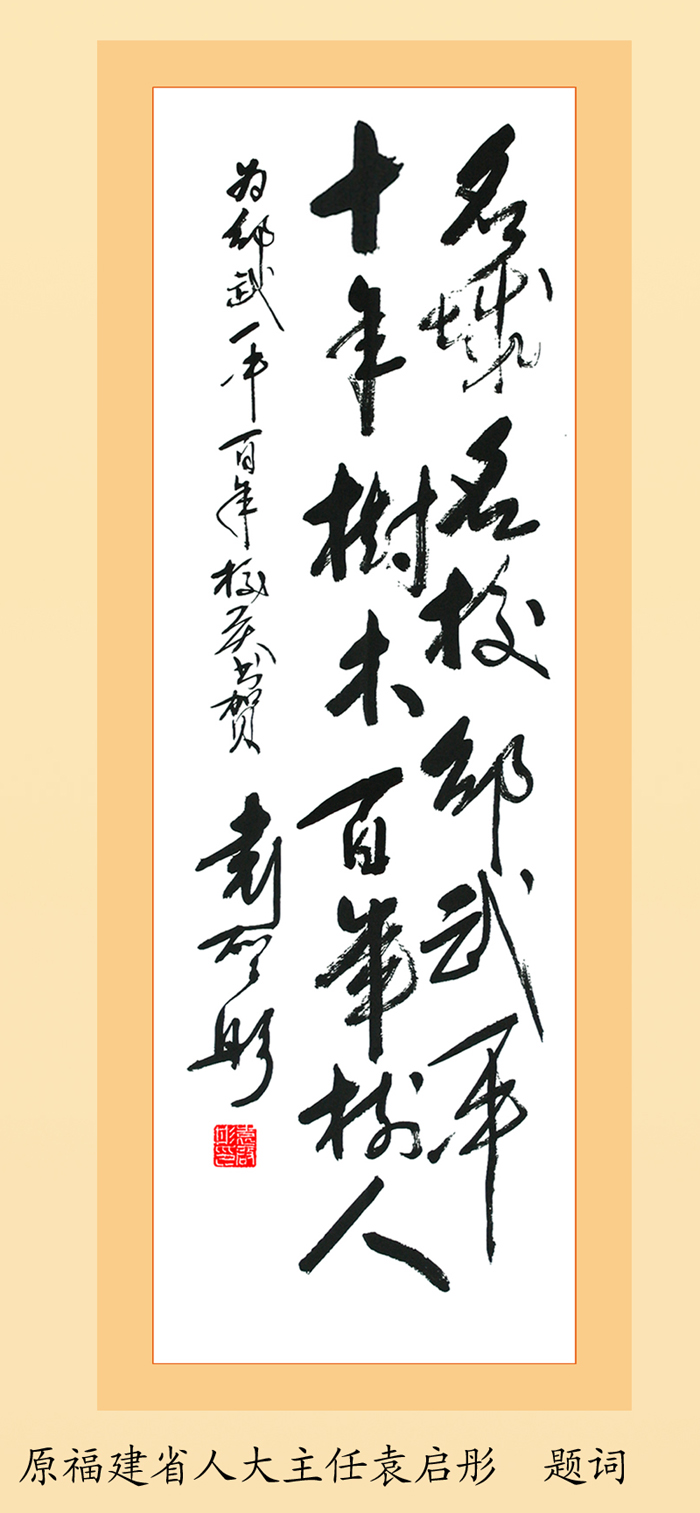 名城名校邵武一中
十年樹木百年树人
为邵武一中百年校庆书贺
袁启彤
原福建省人大主任袁启彤 题词